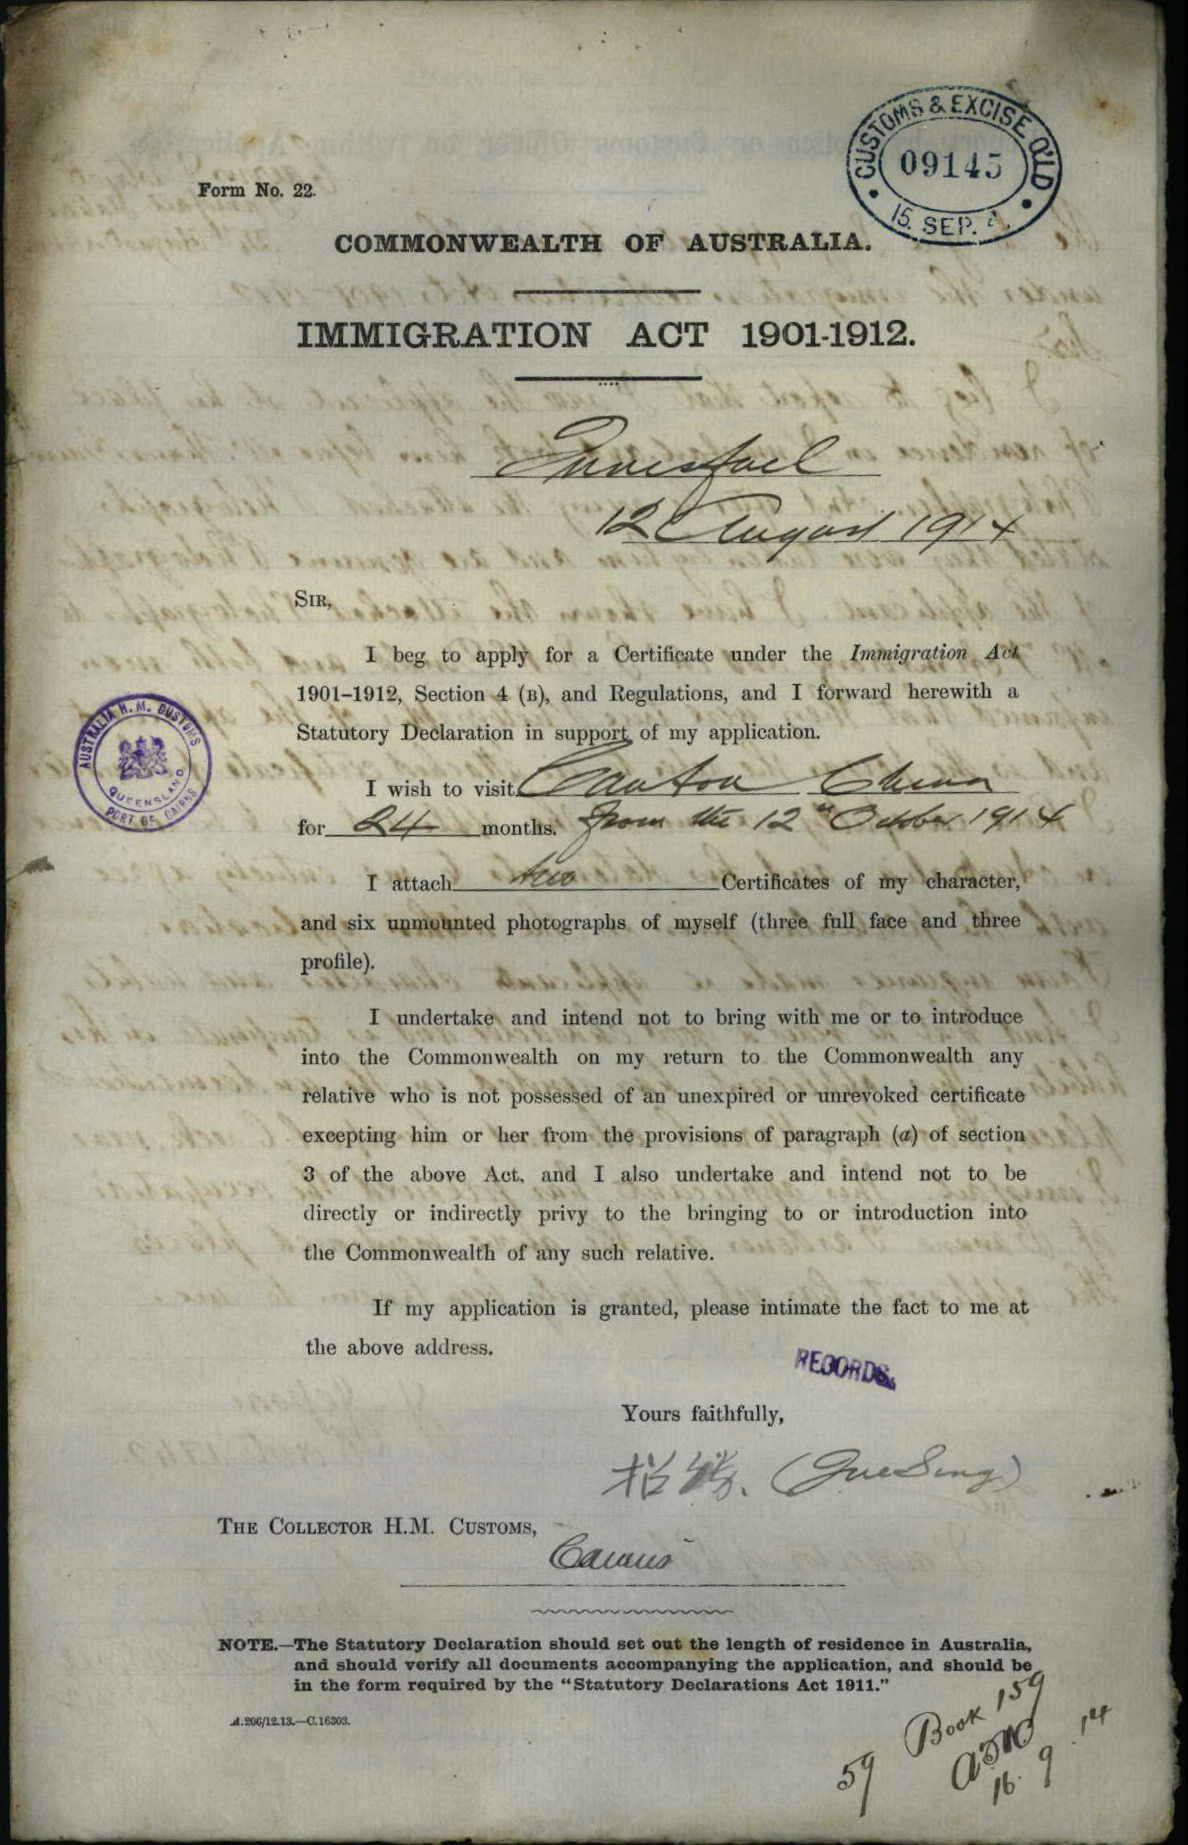 CUSTOMS & EXCISE Q'LD
09145
15. SEP.
Form No. 22.
COMMONWEALTH OF AUSTRALIA.
IMMIGRATION ACT 1901-1912.
Innisfail
12 August 1914
SIR,
I beg to apply for a Certificate under the Immigration Act
1901-1912, Section 4 (B), and Regulations, and I forward herewith a
Statutory Declaration in support of my application.
I wish to visit Canton China
for 24 months. from the 12th October 1914
I attach two Certificates of my character,
and six unmounted photographs of myself (three full face and three
profile).
I undertake and intend not to bring with me or to introduce
into the Commonwealth on my return to the Commonwealth any
relative who is not possessed of an unexpired or unrevoked certificate
excepting him or her from the provisions of paragraph (a) of section
3 of the above Act, and I also undertake and intend not to be
directly or indirectly privy to the bringing to or introduction into
the Commonwealth of any such relative.
If my application is granted, please intimate the fact to me at
the above address.
AUSTRALIA H.M. CUSTOMS
QUEENSLAND
PORT OF CAIRNS
RECORDS.
Yours faithfully,
(Gue Sing)
THE COLLECTOR H.M. CUSTOMS,
Cairns
NOTE.—The Statutory Declaration should set out the length of residence in Australia,
and should verify all documents accompanying the application, and should be
in the form required by the "Statutory Declarations Act 1911."
A.206/12.13.—C.16303.
Book 159
59
16. 9. 14